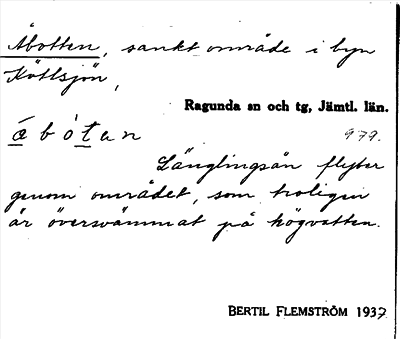 Åbotten, sankt område i byn
Köttsjön,
Ragunda sn och tg, Jämtl. län.
å b ò t e n
979.
Länglingsån flyter
genom området, som troligen
är översvämmat på högvatten.
BERTIL FLEMSTRÖM 1937